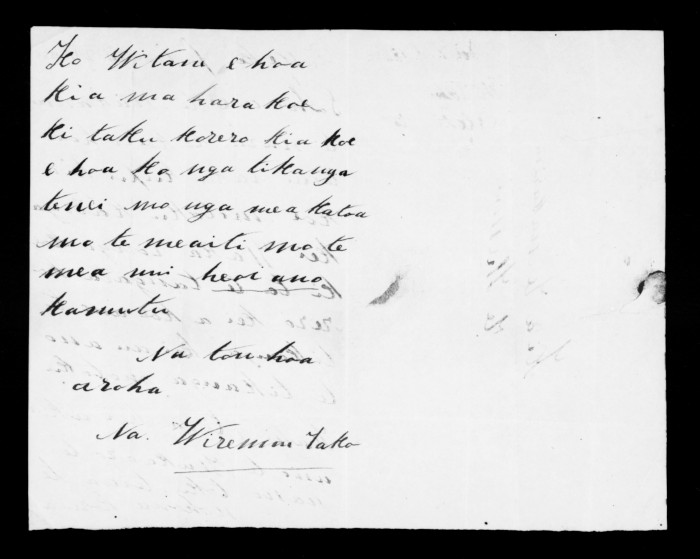 Ko Witana e hoa
kia ma hara koe
ki taku korero kia koe
e hoa ko nga tikanga
tenei mo nga mea katoa
mo te meaiti mo te
mea nui heoi ano
kamutu
Na tou hoa
aroha
Na. Wiremu Tako